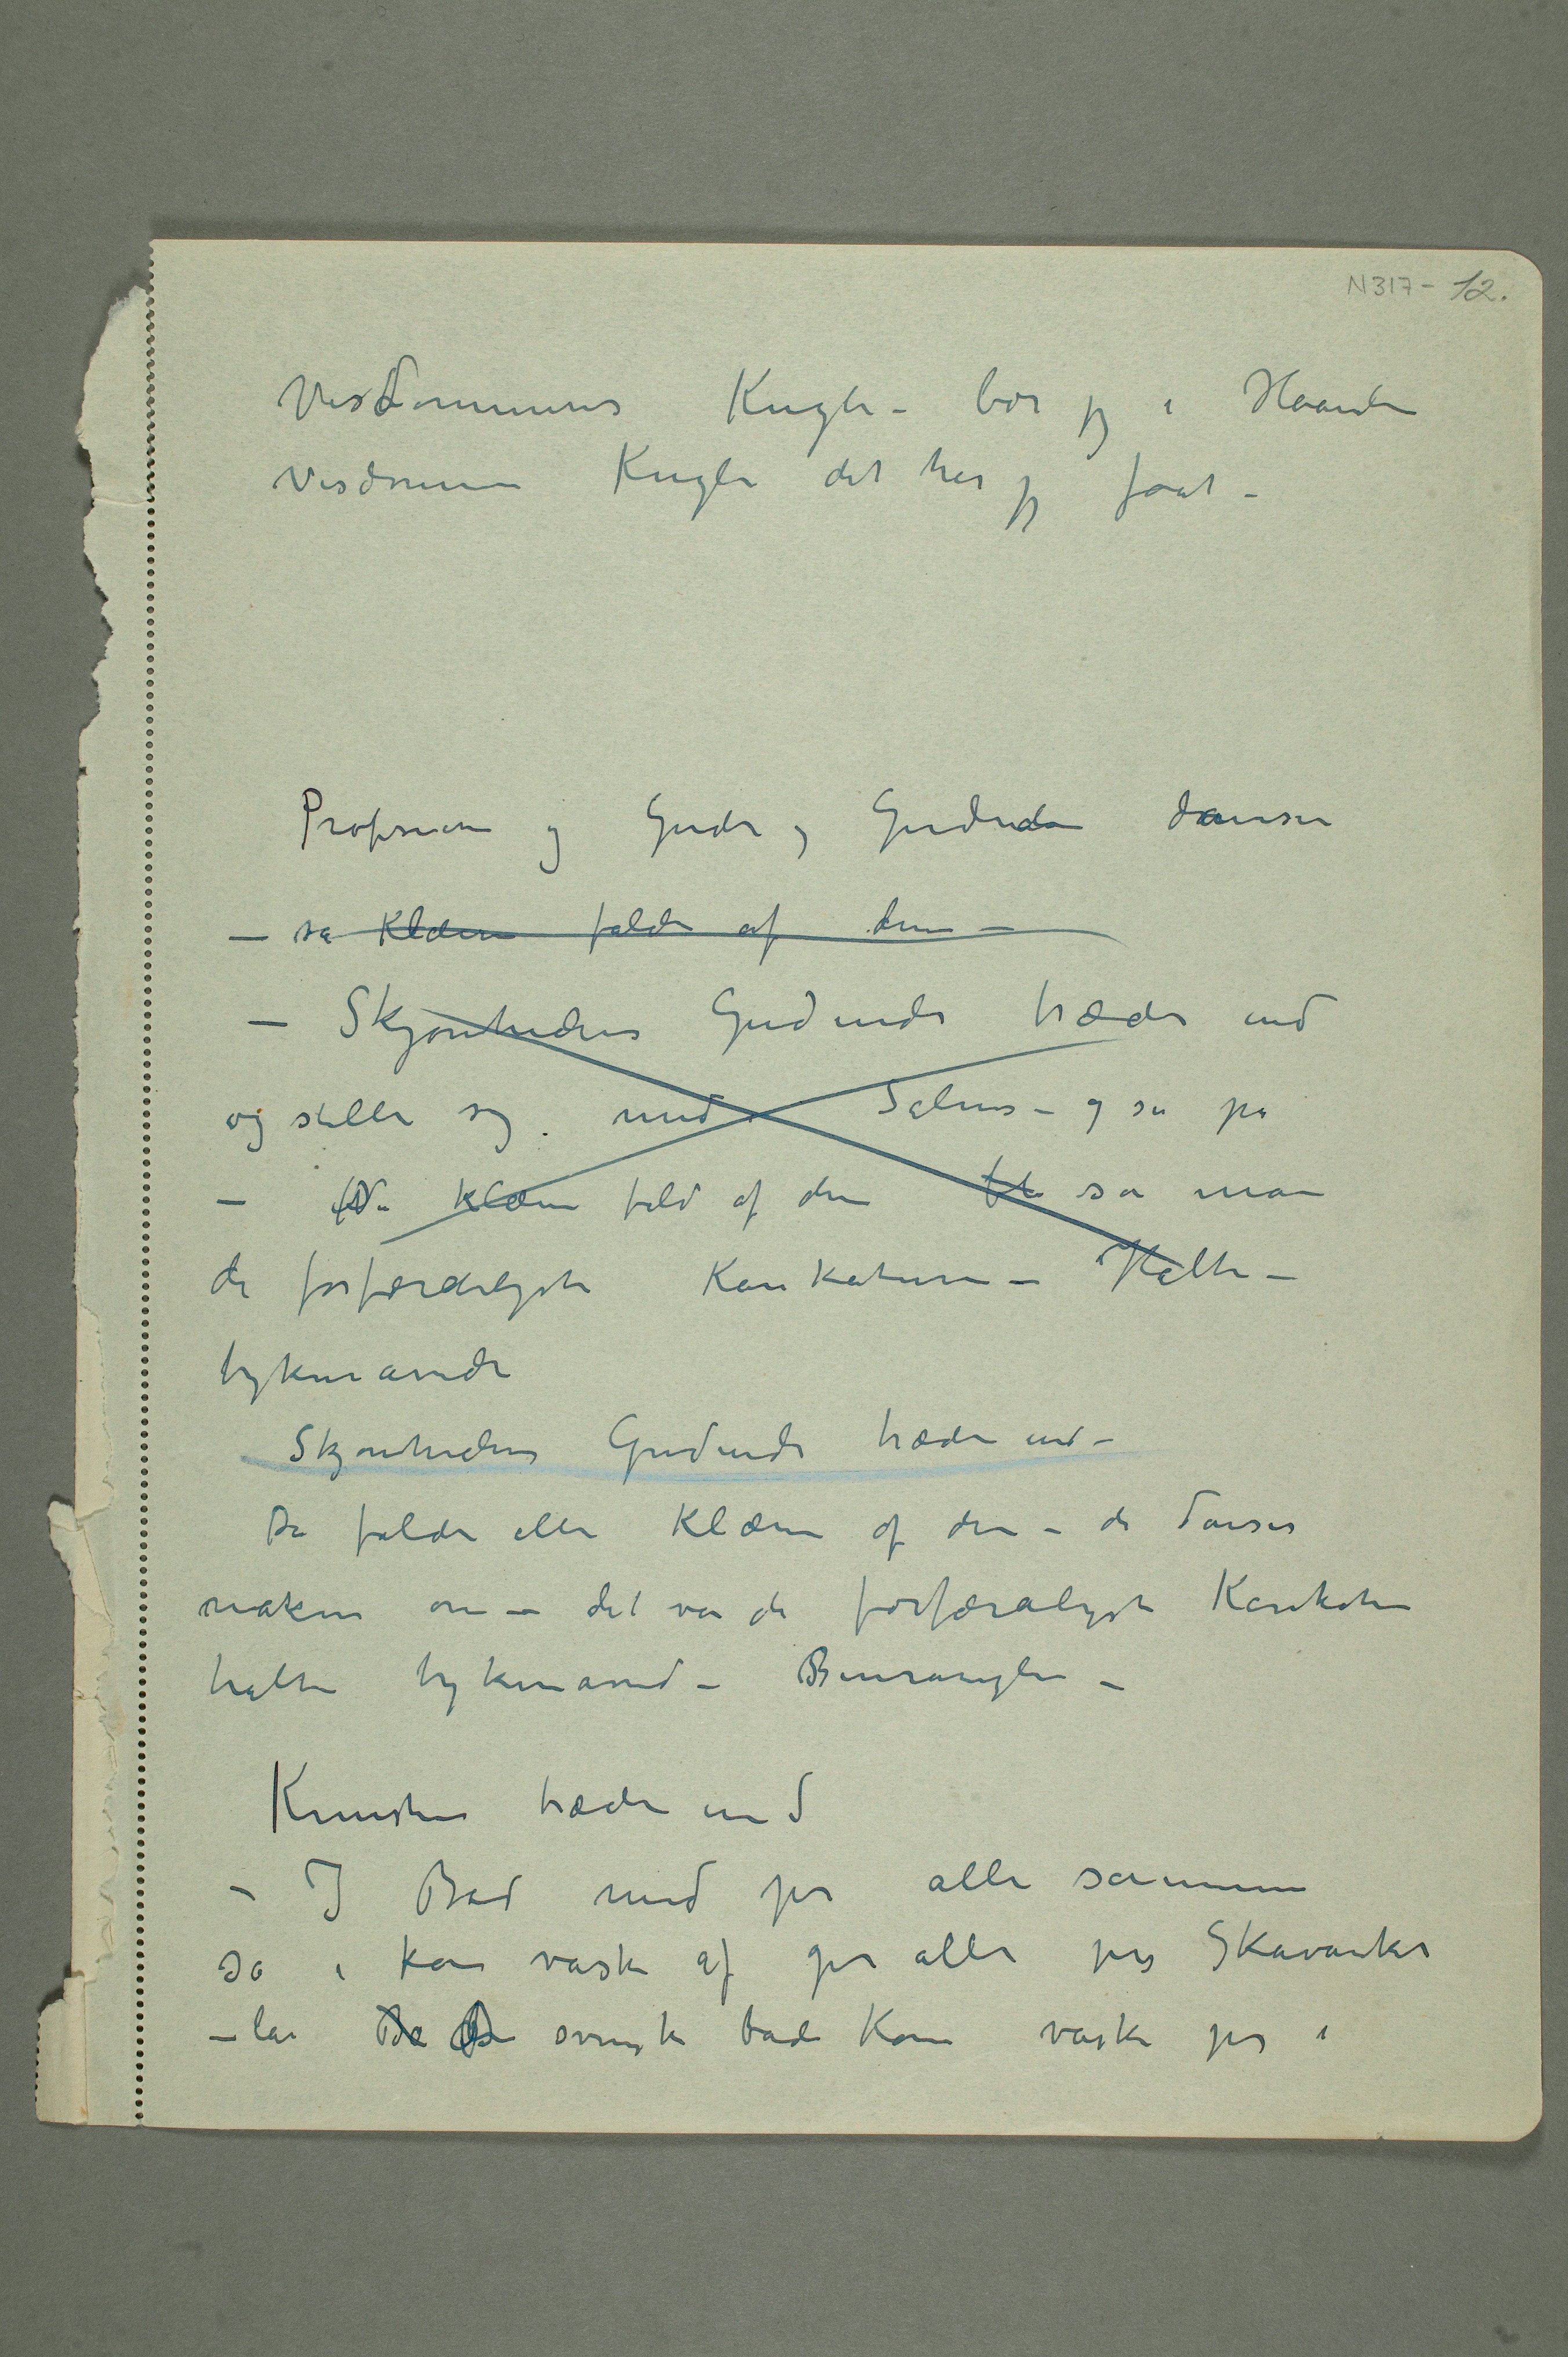 N317- 12.
Visdommens Kugle – bær jeg i Haanden
Visdommens Kugle det har jeg faat –
Profesorene og Guder og Gudinder danser
– så Klæderne falder af dem –
– Skjønhedens Gudinde træder ind
og stiller sig midt Salens – og ser på
– Da klæerne fald af dem så man
de forfærdeligste Karikaturer – Halte –
tykmavede
Skjønhedens Gudinde træder ind –
Da falder alle Klærne af dem – de danser
nakne om – det var de forfærdeligste Karikaturer
halte tykmaved – Benrangler –
Kunsten træder ind
– I Bad med jer alle sammen
så i kan vaske af jer alle jers Skavanker
– lad Be De svenske bade Kone vaske jer i